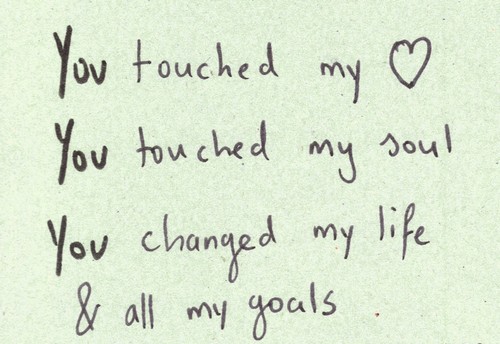 You touched my ♡
You touched my soul
You changed my life
& all my goals.